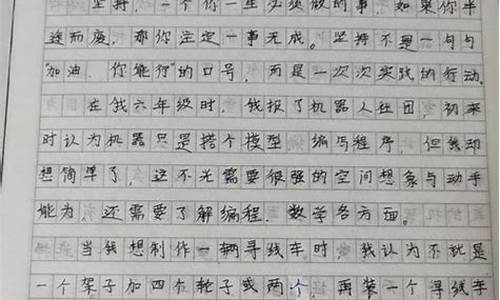 坚持，一个你一生必须做的事，如果你半
途而废，那你注定一事无成。坚持不是一句句
“加油、你能行”的口号，而是一次次实践的行动。
在我六年级时，我报了机器人社团，初来
时认为机器只是搭个模型，编写程序，但我却
想简单了，这不光需要很强的空间想象与动手
能为，还需要了解编程，数学各方面。
当我想制作一辆寻线车时，我认为不就是
一个架子加四个轮子或两个，再装一个寻线车